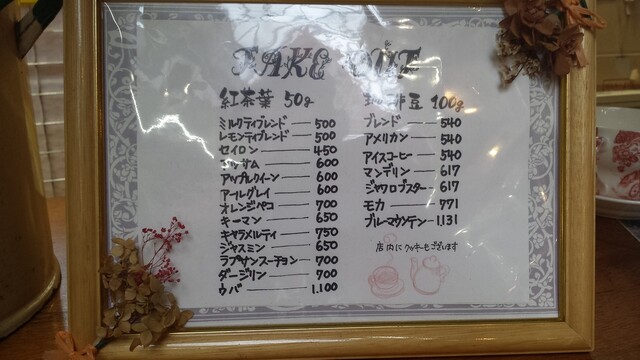 TAKE OUT
紅茶葉 50g
ミルクティブレンド 500
レモンティブレンド 500
セイロン 450
アッサム 600
アップルクイーン 600
アールグレイ 600
オレンジペコ 700
キーマン 650
キャラメルティ 750
ジャスミン 650
ラプサンスーチョン 700
ダージリン 700
ウバ 1.100
珈琲豆 100g
ブレンド 540
アメリカン 540
アイスコーヒー 540
マンデリン 617
ジャワロブスター 617
モカ 771
ブルーマウンテン 1.131
店内にクッキーもございます